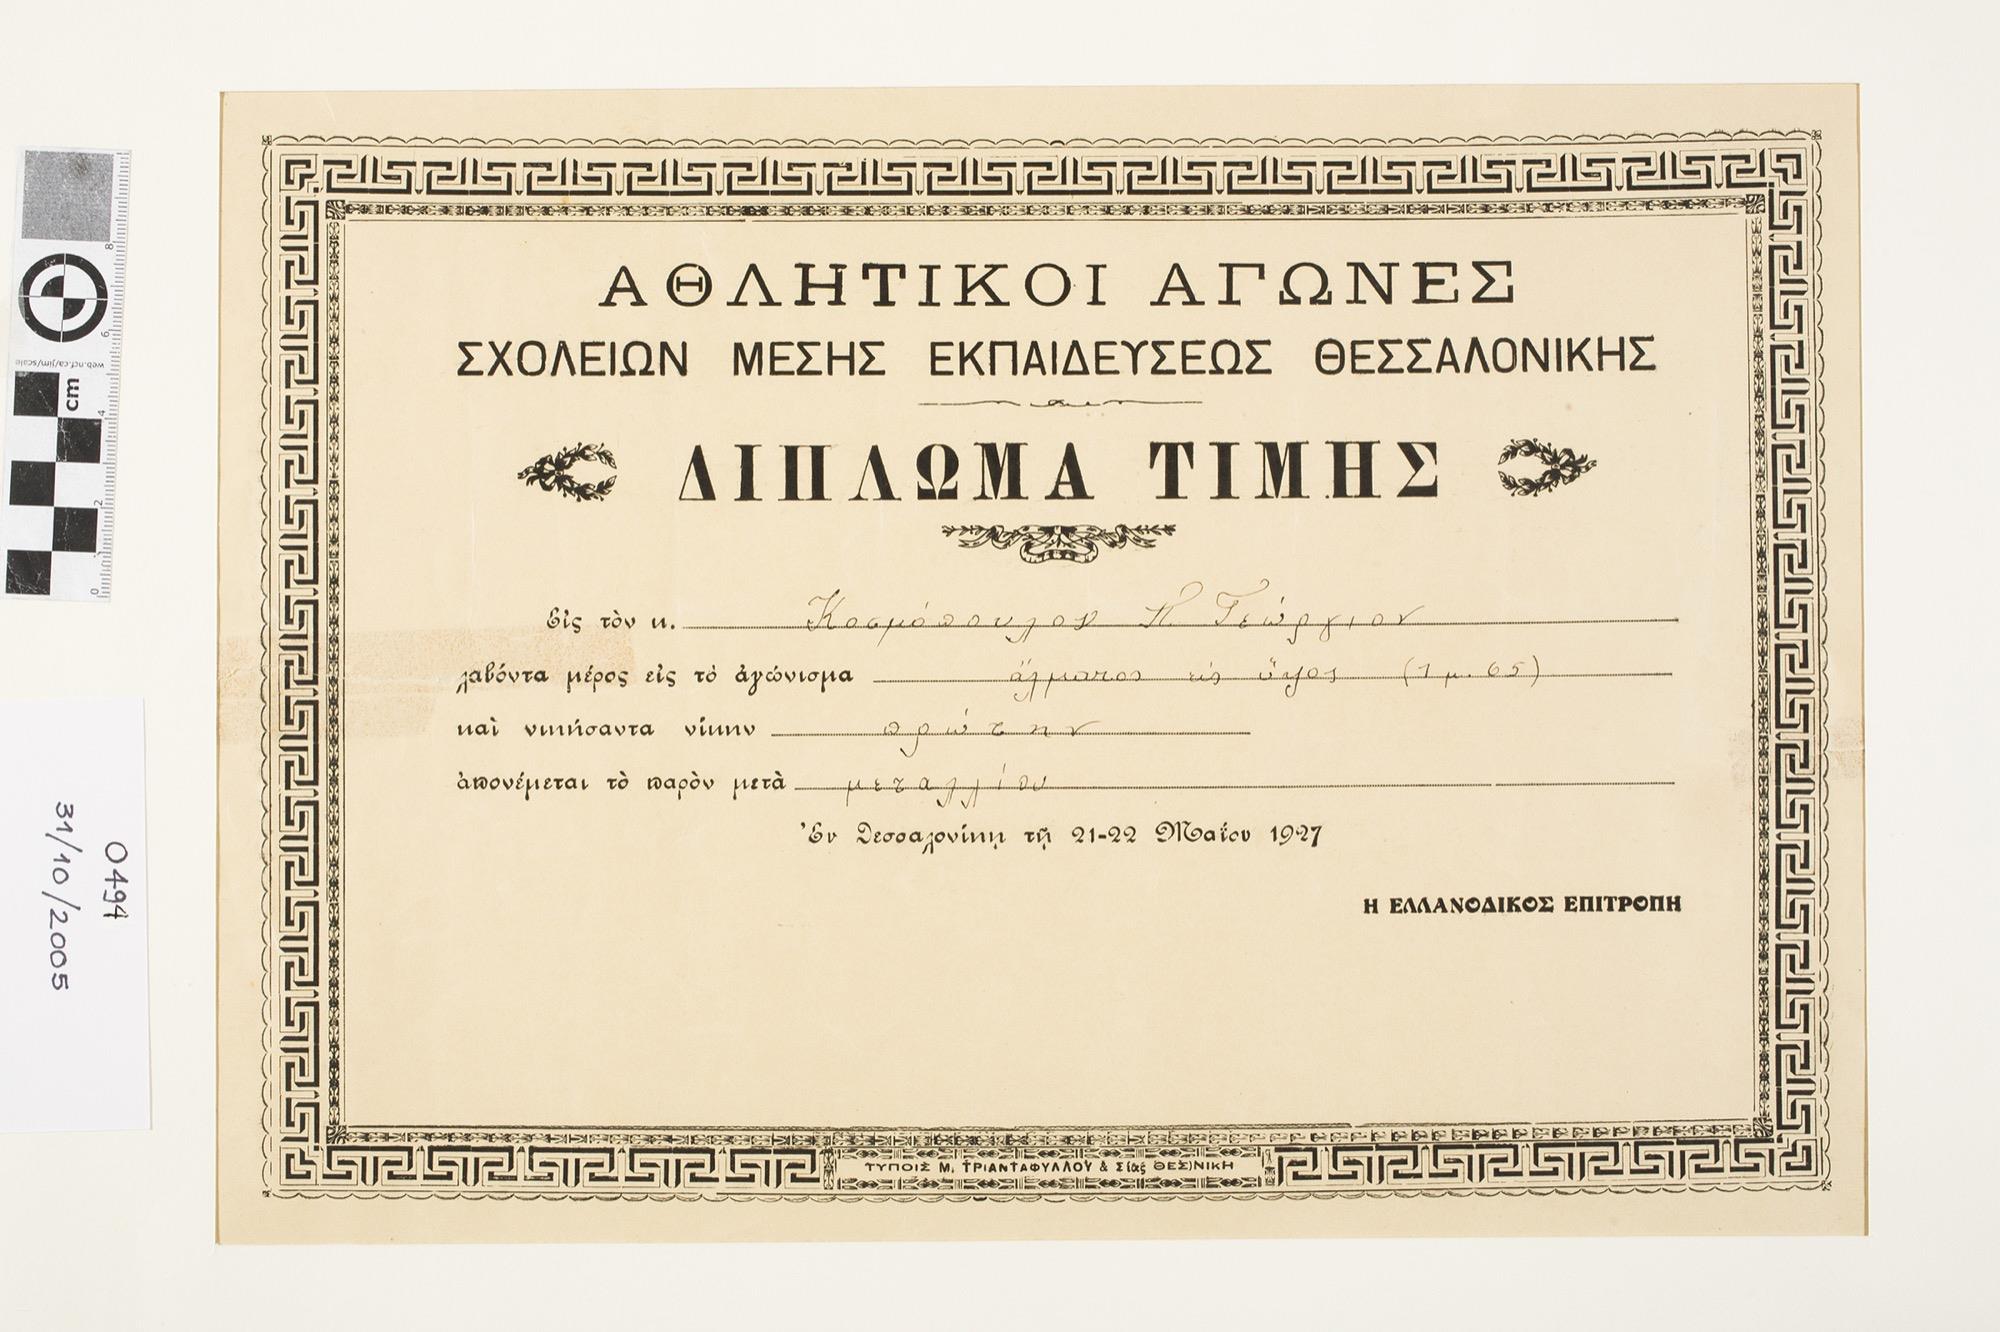 ΑΘΛΗΤΙΚΟΙ ΑΓΩΝΕΣ
ΣΧΟΛΕΙΩΝ ΜΕΣΗΣ ΕΚΠΑΙΔΕΥΣΕΩΣ ΘΕΣΣΑΛΟΝΙΚΗΣ
ΔΙΠΛΩΜΑ ΤΙΜΗΣ
Εἰς τὸν κ. Κοσμόπουλον Π. Γεώργιον
λαβόντα μέρος εἰς τὸ ἀγώνισμα ἅλματος εἰς ὕψος (1 μ. 65)
καὶ νικήσαντα νίκην πρώτην
ἀπονέμεται τὸ παρὸν μετὰ μεταλλίου
Ἐν Θεσσαλονίκῃ τῇ 21-22 Μαΐου 1927
Η ΕΛΛΑΝΟΔΙΚΟΣ ΕΠΙΤΡΟΠΗ
ΤΥΠΟΙΣ Μ. ΤΡΙΑΝΤΑΦΥΛΛΟΥ & Σίας ΘΕΣ)ΝΙΚΗ
8
6
web.ncf.ca/jim/scale
cm
4
2
0
0494
31/10/2005